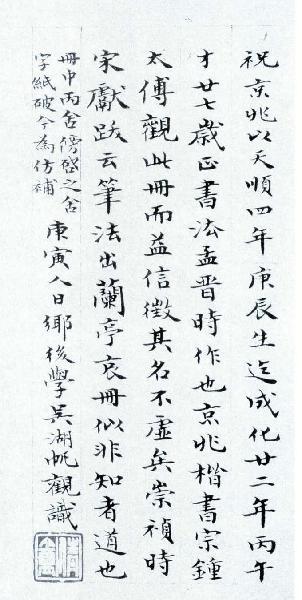 祝京兆以天順四年庚辰生迄成化廿二年丙午
才廿七歲正書法孟晉時作也京兆楷書宗鍾
太傅觀此冊而益信徵其名不虛矣崇禎時
宋獻跋云筆法出蘭亭哀冊似非知者道也
冊中丙舍傍啓之舍
字紙破今為仿補
庚寅人日鄉後學吳湖帆觀識